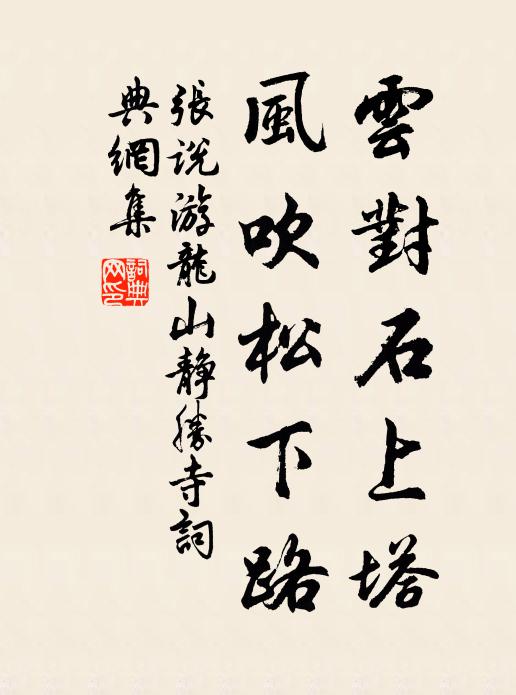 雲對石上塔
風吹松下路
張説游龍山靜勝寺詞
典網集
詞典
网印